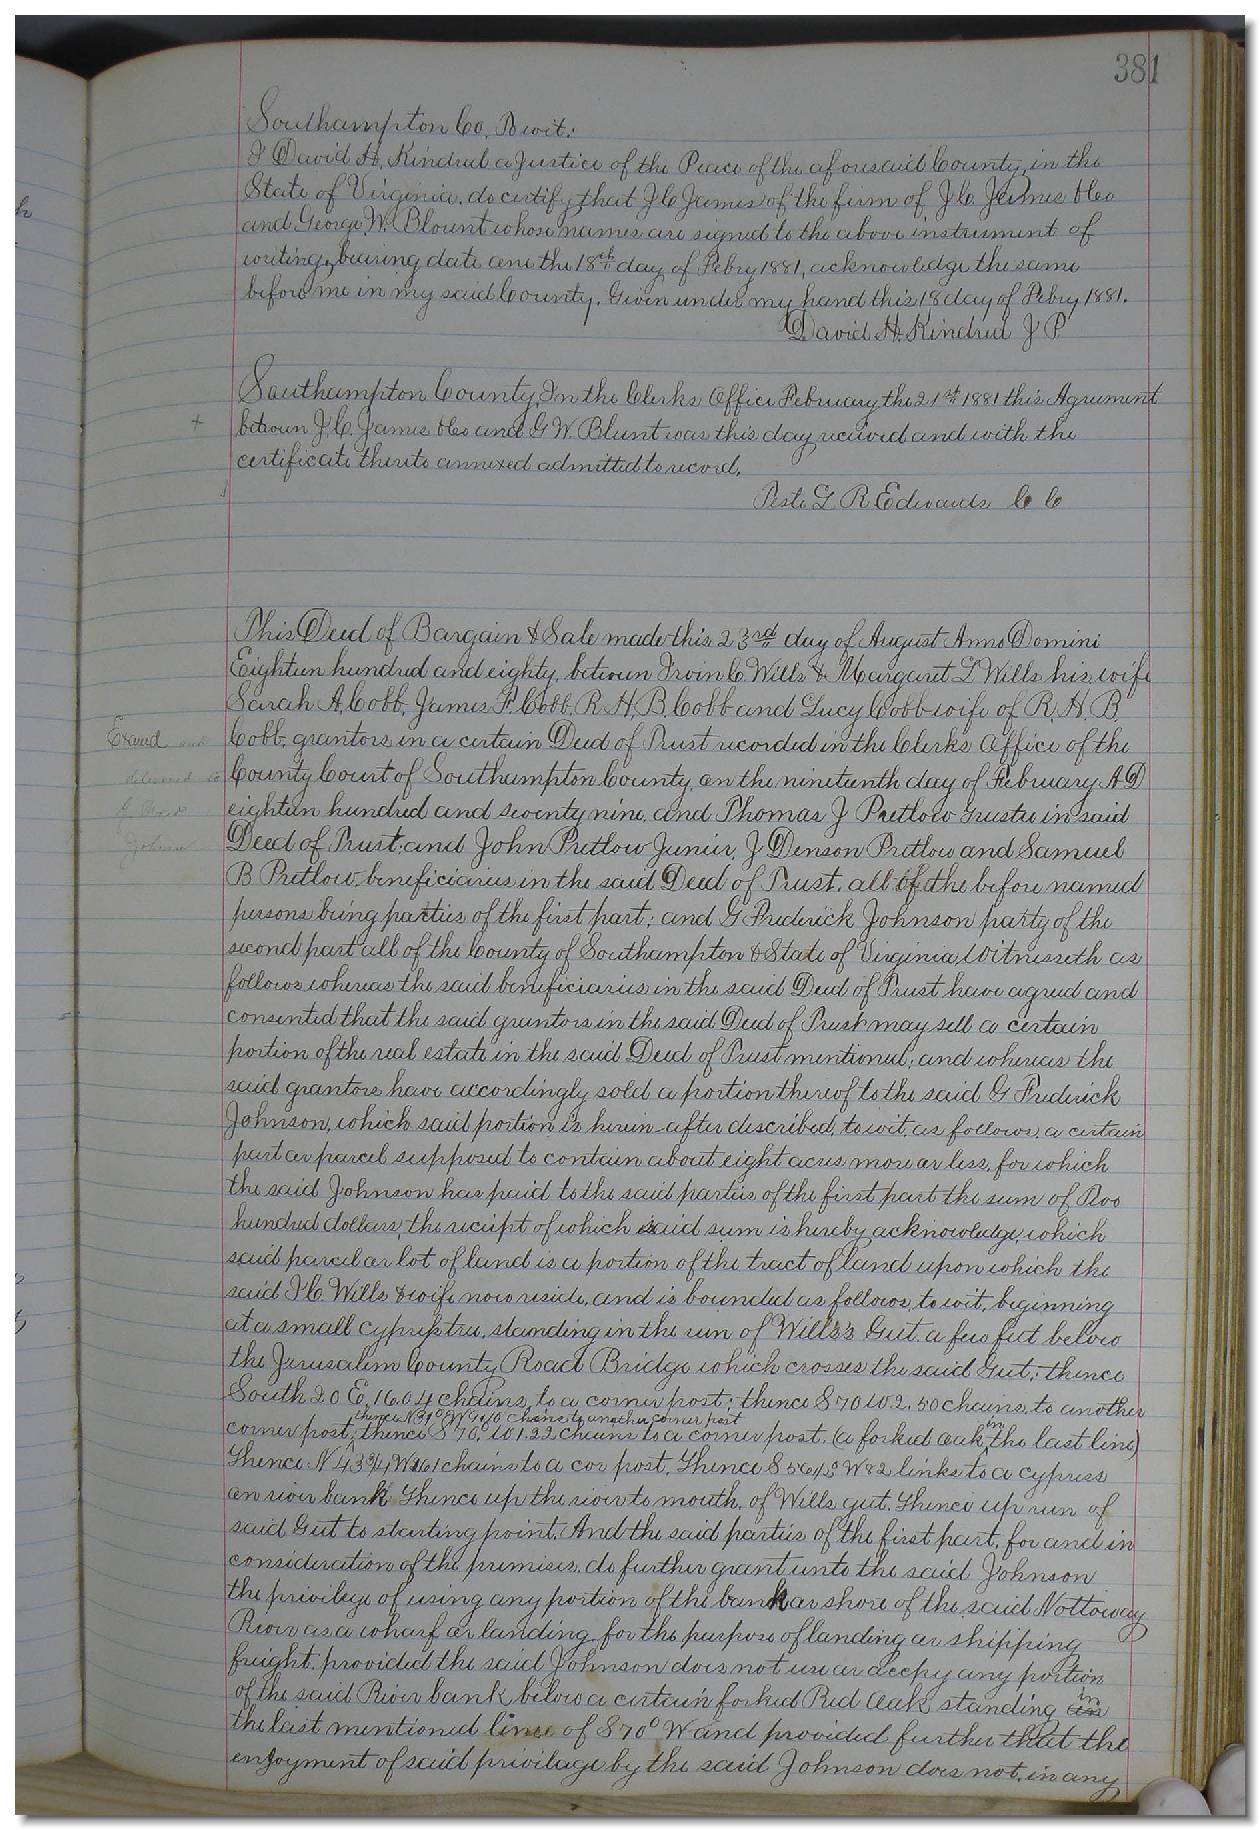 381
Southampton Co, Towit:
I David H. Kindred a Justice of the Peace of the aforesaid County, in the
State of Virginia, do certify, that J. C. James of the firm of J. C. James & Co
and George W. Blount whose names are signed to the above instrument of
writing, bearing date on the 18th day of Febry 1881, acknowledge the same
before me in my said County. Given under my hand this 18 day of Febry 1881.
David H. Kindred J P
Southampton County, In the Clerks Office February the 21st 1881 this Agreement
+
between J. C. James & Co and G W. Blunt was this day received and with the
certificate thereto annexed admitted to record.
Teste L R Edwards C C
This Deed of Bargain & Sale made this 23rd day of August Anno Domini
Eighteen hundred and eighty, between Irvin C. Wills & Margaret L Wills his wife
Sarah A. Cobb, James F. Cobb, R. H. B. Cobb and Lucy Cobb wife of R. H. B.
Cobb, grantors in a certain Deed of Trust recorded in the Clerks Office of the
Examd and
County Court of Southampton County, on the nineteenth day of February A D
delivered to
eighteen hundred and seventy nine, and Thomas J Pretlow Trustee in said
Deed of Trust, and John Pretlow Junior, J Denson Pretlow and Samuel
Johnson
B Pretlow, beneficiaries in the said Deed of Trust, all of the before named
persons being parties of the first part; and G Frederick Johnson party of the
second part all of the County of Southampton & State of Virginia, Witnesseth as
follows whereas the said beneficiaries in the said Deed of Trust have agreed and
consented that the said grantors in the said Deed of Trust may sell a certain
portion of the real estate in the said Deed of Trust mentioned; and whereas the
said grantors have accordingly sold a portion thereof to the said G Frederick
Johnson, which said portion is herein after described, towit, as follows, a certain
part or parcel supposed to contain about eight acres more or less, for which
the said Johnson has paid to the said parties of the first part the sum of Two
hundred dollars, the receipt of which said sum is hereby acknowledge, which
said parcel or lot of land is a portion of the tract of land upon which the
said I. C. Wills & wife now reside, and is bounded as follows, to wit, beginning
at a small cypress tree, standing in the run of Wills's Gut a few feet below
the Jerusalem County Road Bridge which crosses the said Gut; thence
South 20 E, 16.04 chains, to a corner post; thence S 70 W 2.50 chains, to another
thence N 31° W chains to another corner post
corner post, thence S 70, W 1.22 chains to a corner post. (a forked oak in the last line)
Thence N 43 3/4 W chains to a cor post, Thence S W 82 links to a cypress
on river bank Thence up the river to mouth, of Wills gut. Thence up run of
said Gut to starting point. And the said parties of the first part, for and in
consideration of the premises, do further grant unto the said Johnson
the privilege of using any portion of the bank or shore of the said Nottoway
River as a wharf or landing for the purpose of landing or shipping
freight, provided the said Johnson does not use or occpy any portion
of the said River bank below a certain forked Red Oak standing in
the last mentioned line of S 70° W and provided further that the
enjoyment of said privilage by the said Johnson does not, in any